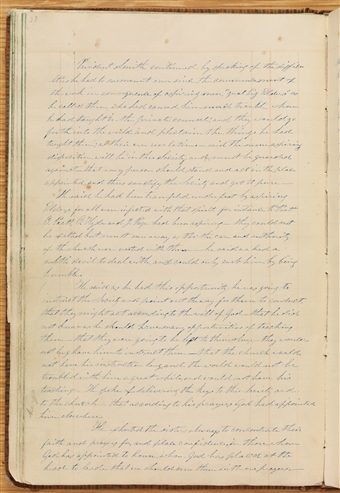 President Smith continued by speaking of the difficul-
ties he had to surmount ever since the commencement of
the work in consequence of aspiring men, "great big Elders" as
he called them who had caused him much trouble, whom
he had taught in the private counsel; and they would go
forth into the world and proclaim the things he had
taught them; as their own revelations— said the same aspiring
disposition will be in this Society, and must be guarded
against— that every person should stand and act in the place
appointed, and thus sanctify the Society and get it pure—
He said he had been trampled under foot by aspiring
Elders, for all were infected with that spirit, for instance
P. Pratt O. Hyde and J. Page had been aspiring— they could not
be exalted but must run away as tho' the care and authority
of the church were vested with them— he said we had a
subtle devil to deal with, and could only curb him by being
humble.
He said as he had this opportunity he was going to
instruct the Society and point out the way for them to conduct,
that they might act according to the will of God— that he did
not know as he should have many opportunities of teaching
them— that they were going to be left to themselves— they would
not long have him to instruct them— that the church would
not have his instruction long, and the world would not be
troubled with him a great while and would not have his
teachings— He spoke of delivering the keys to the Society and
to the church— that according to his prayers God had appointed
him elsewhere.
He exhorted the sisters always to concentrate their
faith and prayers for and place confidence in those whom
God has appointed to honor, whom God has placed at the
head to lead— that we should arm them with our prayers—